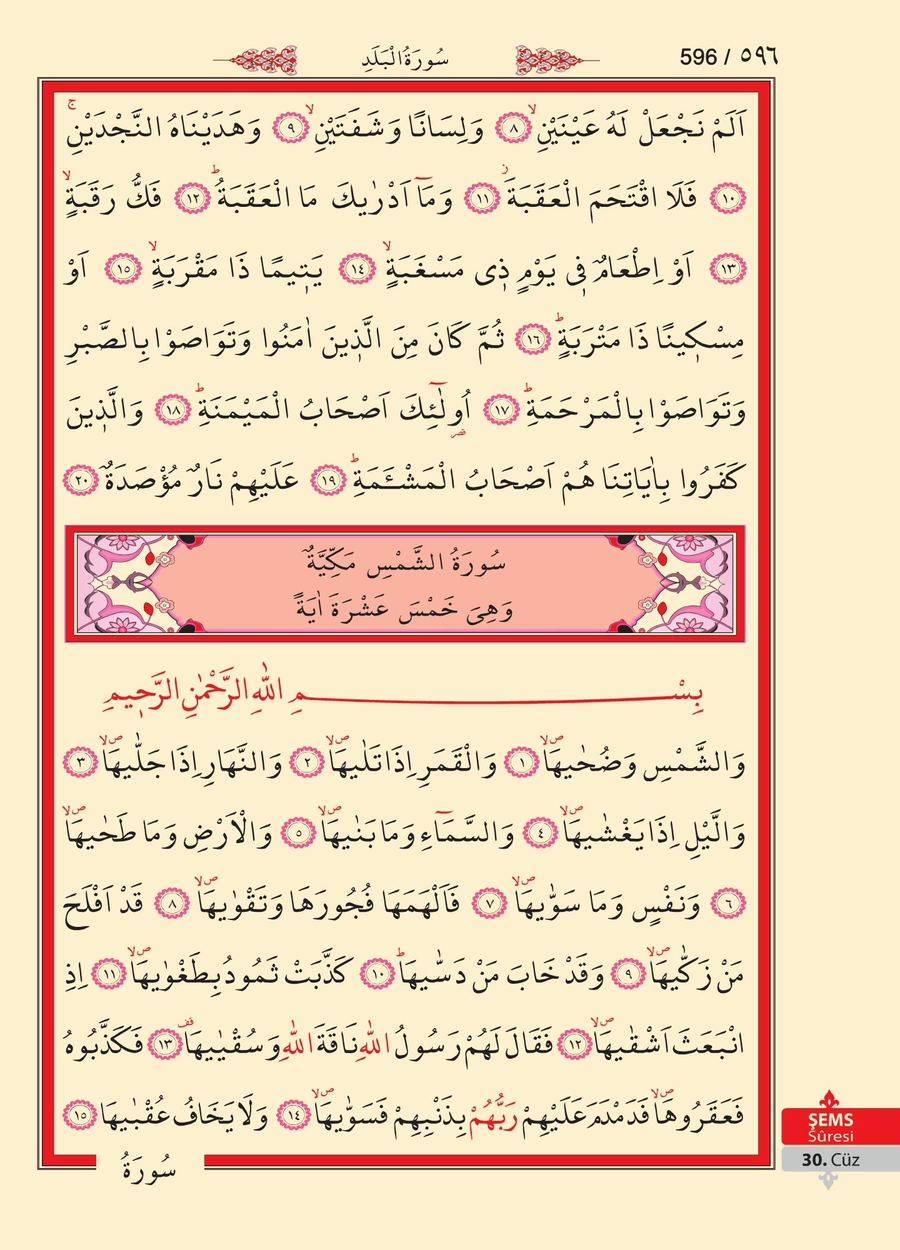 سُورَةُ الْبَلَدِ
596 / ٥٩٦
اَلَمْ نَجْعَلْ لَهُ عَيْنَيْنِۙ ﴿٨﴾ وَلِسَانًا وَشَفَتَيْنِۙ ﴿٩﴾ وَهَدَيْنَاهُ النَّجْدَيْنِۚ
﴿١٠﴾ فَلَا اقْتَحَمَ الْعَقَبَةَۘ ﴿١١﴾ وَمَٓا اَدْرٰيكَ مَا الْعَقَبَةُۜ ﴿١٢﴾ فَكُّ رَقَبَةٍۙ
﴿١٣﴾ اَوْ اِطْعَامٌ فٖى يَوْمٍ ذٖى مَسْغَبَةٍۙ ﴿١٤﴾ يَتٖيمًا ذَا مَقْرَبَةٍۙ ﴿١٥﴾ اَوْ
مِسْكٖينًا ذَا مَتْرَبَةٍۜ ﴿١٦﴾ ثُمَّ كَانَ مِنَ الَّذٖينَ اٰمَنُوا وَتَوَاصَوْا بِالصَّبْرِ
وَتَوَاصَوْا بِالْمَرْحَمَةِۜ ﴿١٧﴾ اُولٰٓئِكَ اَصْحَابُ الْمَيْمَنَةِۜ ﴿١٨﴾ وَالَّذٖينَ
كَفَرُوا بِاٰيَاتِنَا هُمْ اَصْحَابُ الْمَشْـَٔمَةِۜ ﴿١٩﴾ عَلَيْهِمْ نَارٌ مُؤْصَدَةٌ ﴿٢٠﴾
سُورَةُ الشَّمْسِ مَكِّيَّةٌ
وَهِىَ خَمْسَ عَشْرَةَ اٰيَةً
بِسْمِ اللّٰهِ الرَّحْمٰنِ الرَّحٖيمِ
وَالشَّمْسِ وَضُحٰيهَاۙۖ ﴿١﴾ وَالْقَمَرِ اِذَا تَلٰيهَاۙۖ ﴿٢﴾ وَالنَّهَارِ اِذَا جَلّٰيهَاۙۖ ﴿٣﴾
وَالَّيْلِ اِذَا يَغْشٰيهَاۙۖ ﴿٤﴾ وَالسَّمَٓاءِ وَمَا بَنٰيهَاۙۖ ﴿٥﴾ وَالْاَرْضِ وَمَا طَحٰيهَاۙۖ
﴿٦﴾ وَنَفْسٍ وَمَا سَوّٰيهَاۙۖ ﴿٧﴾ فَاَلْهَمَهَا فُجُورَهَا وَتَقْوٰيهَاۙۖ ﴿٨﴾ قَدْ اَفْلَحَ
مَنْ زَكّٰيهَاۙۖ ﴿٩﴾ وَقَدْ خَابَ مَنْ دَسّٰيهَاۜ ﴿١٠﴾ كَذَّبَتْ ثَمُودُ بِطَغْوٰيهَاۙۖ ﴿١١﴾ اِذِ
انْبَعَثَ اَشْقٰيهَاۙۖ ﴿١٢﴾ فَقَالَ لَهُمْ رَسُولُ اللّٰهِ نَاقَةَ اللّٰهِ وَسُقْيٰيهَا ﴿١٣﴾ فَكَذَّبُوهُ
فَعَقَرُوهَاۙۖ فَدَمْدَمَ عَلَيْهِمْ رَبُّهُمْ بِذَنْبِهِمْ فَسَوّٰيهَاۙۖ ﴿١٤﴾ وَلَا يَخَافُ عُقْبٰيهَا ﴿١٥﴾
سُورَةُ
ŞEMS
Sûresi
30. Cüz